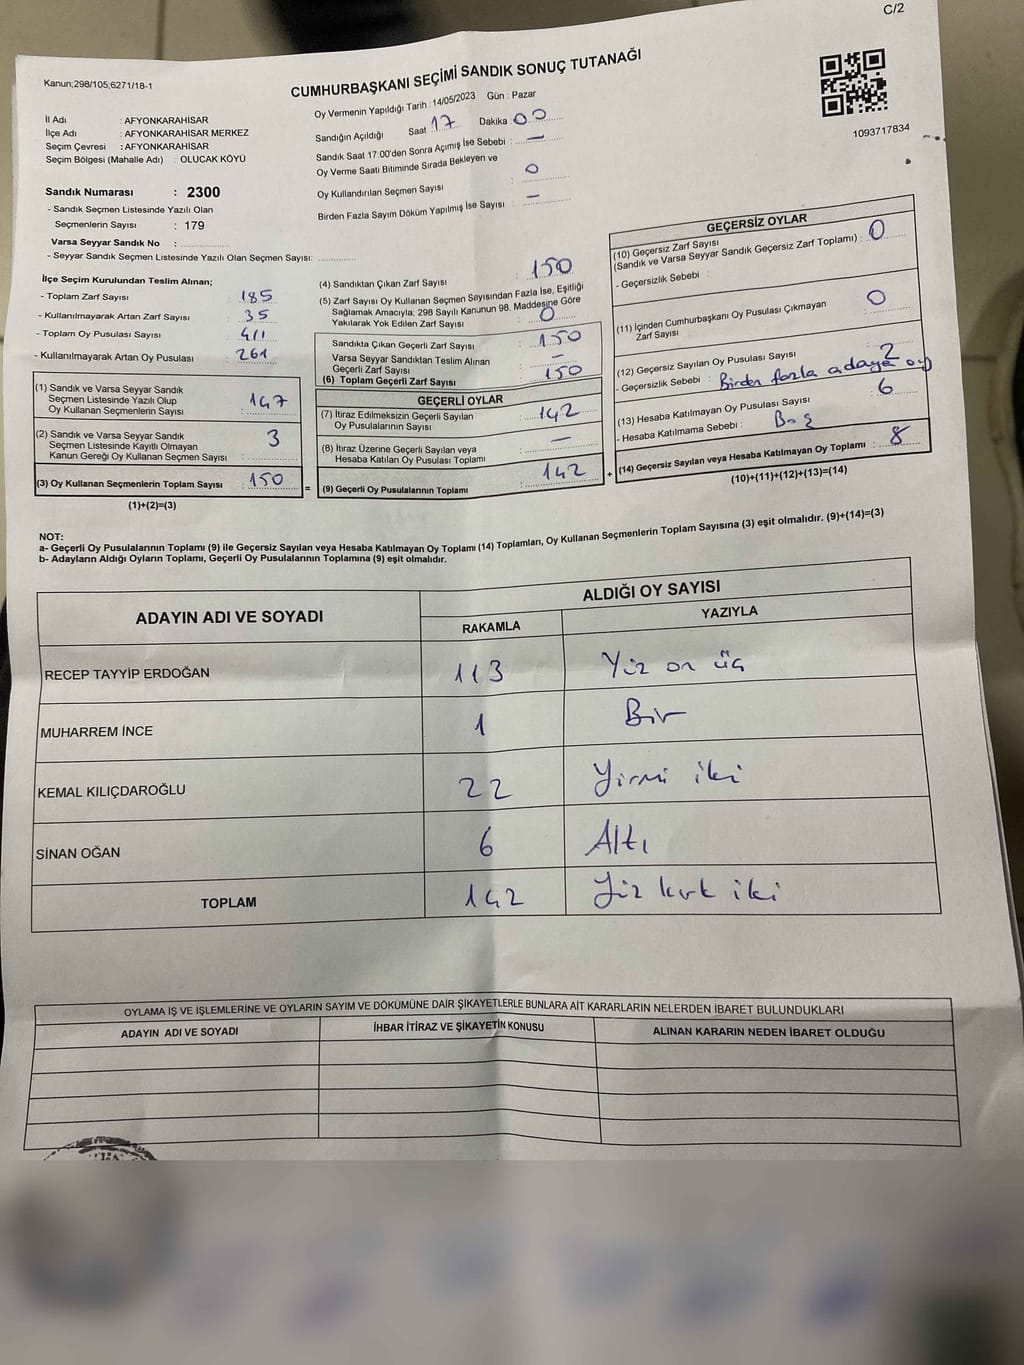 C/2
Kanun;298/105;6271/18-1
CUMHURBAŞKANI SEÇİMİ SANDIK SONUÇ TUTANAĞI
1093717834
İl Adı : AFYONKARAHİSAR
İlçe Adı : AFYONKARAHİSAR MERKEZ
Seçim Çevresi : AFYONKARAHİSAR
Seçim Bölgesi (Mahalle Adı) : OLUCAK KÖYÜ
Sandık Numarası : 2300
- Sandık Seçmen Listesinde Yazılı Olan
Seçmenlerin Sayısı : 179
Varsa Seyyar Sandık No :
- Seyyar Sandık Seçmen Listesinde Yazılı Olan Seçmen Sayısı:
Oy Vermenin Yapıldığı Tarih : 14/05/2023 Gün : Pazar
Sandığın Açıldığı Saat 17 Dakika 00
Sandık Saat 17:00'den Sonra Açımış İse Sebebi : —
Oy Verme Saati Bitiminde Sırada Bekleyen ve
Oy Kullandırılan Seçmen Sayısı : 0
Birden Fazla Sayım Döküm Yapılmış İse Sayısı : —
İlçe Seçim Kurulundan Teslim Alınan;
- Toplam Zarf Sayısı : 185
- Kullanılmayarak Artan Zarf Sayısı : 35
- Toplam Oy Pusulası Sayısı : 411
- Kullanılmayarak Artan Oy Pusulası : 261
(1) Sandık ve Varsa Seyyar Sandık
Seçmen Listesinde Yazılı Olup
Oy Kullanan Seçmenlerin Sayısı : 147
(2) Sandık ve Varsa Seyyar Sandık
Seçmen Listesinde Kayıtlı Olmayan
Kanun Gereği Oy Kullanan Seçmen Sayısı : 3
(3) Oy Kullanan Seçmenlerin Toplam Sayısı : 150
(1)+(2)=(3)
=
(4) Sandıktan Çıkan Zarf Sayısı : 150
(5) Zarf Sayısı Oy Kullanan Seçmen Sayısından Fazla İse, Eşitliği
Sağlamak Amacıyla; 298 Sayılı Kanunun 98. Maddesine Göre
Yakılarak Yok Edilen Zarf Sayısı : 0
Sandıkta Çıkan Geçerli Zarf Sayısı : 150
Varsa Seyyar Sandıktan Teslim Alınan
Geçerli Zarf Sayısı : —
(6) Toplam Geçerli Zarf Sayısı : 150
GEÇERLİ OYLAR
(7) İtiraz Edilmeksizin Geçerli Sayılan
Oy Pusulalarının Sayısı : 142
(8) İtiraz Üzerine Geçerli Sayılan veya
Hesaba Katılan Oy Pusulası Toplamı : —
(9) Geçerli Oy Pusulalarının Toplamı : 142
+
GEÇERSİZ OYLAR
(10) Geçersiz Zarf Sayısı
(Sandık ve Varsa Seyyar Sandık Geçersiz Zarf Toplamı) : 0
- Geçersizlik Sebebi :
(11) İçinden Cumhurbaşkanı Oy Pusulası Çıkmayan
Zarf Sayısı : 0
(12) Geçersiz Sayılan Oy Pusulası Sayısı : 2
- Geçersizlik Sebebi : Birden fazla adaya oy
(13) Hesaba Katılmayan Oy Pusulası Sayısı : 6
- Hesaba Katılmama Sebebi : Boş
(14) Geçersiz Sayılan veya Hesaba Katılmayan Oy Toplamı : 8
(10)+(11)+(12)+(13)=(14)
NOT:
a- Geçerli Oy Pusulalarının Toplamı (9) ile Geçersiz Sayılan veya Hesaba Katılmayan Oy Toplamı (14) Toplamları, Oy Kullanan Seçmenlerin Toplam Sayısına (3) eşit olmalıdır. (9)+(14)=(3)
b- Adayların Aldığı Oyların Toplamı, Geçerli Oy Pusulalarının Toplamına (9) eşit olmalıdır.
ADAYIN ADI VE SOYADI ALDIĞI OY SAYISI
RAKAMLA YAZIYLA
RECEP TAYYİP ERDOĞAN 113 Yüz on üç
MUHARREM İNCE 1 Bir
KEMAL KILIÇDAROĞLU 22 Yirmi iki
SİNAN OĞAN 6 Altı
TOPLAM 142 Yüz kırk iki
OYLAMA İŞ VE İŞLEMLERİNE VE OYLARIN SAYIM VE DÖKÜMÜNE DAİR ŞİKAYETLERLE BUNLARA AİT KARARLARIN NELERDEN İBARET BULUNDUKLARI
ADAYIN ADI VE SOYADI İHBAR İTİRAZ VE ŞİKAYETİN KONUSU ALINAN KARARIN NEDEN İBARET OLDUĞU